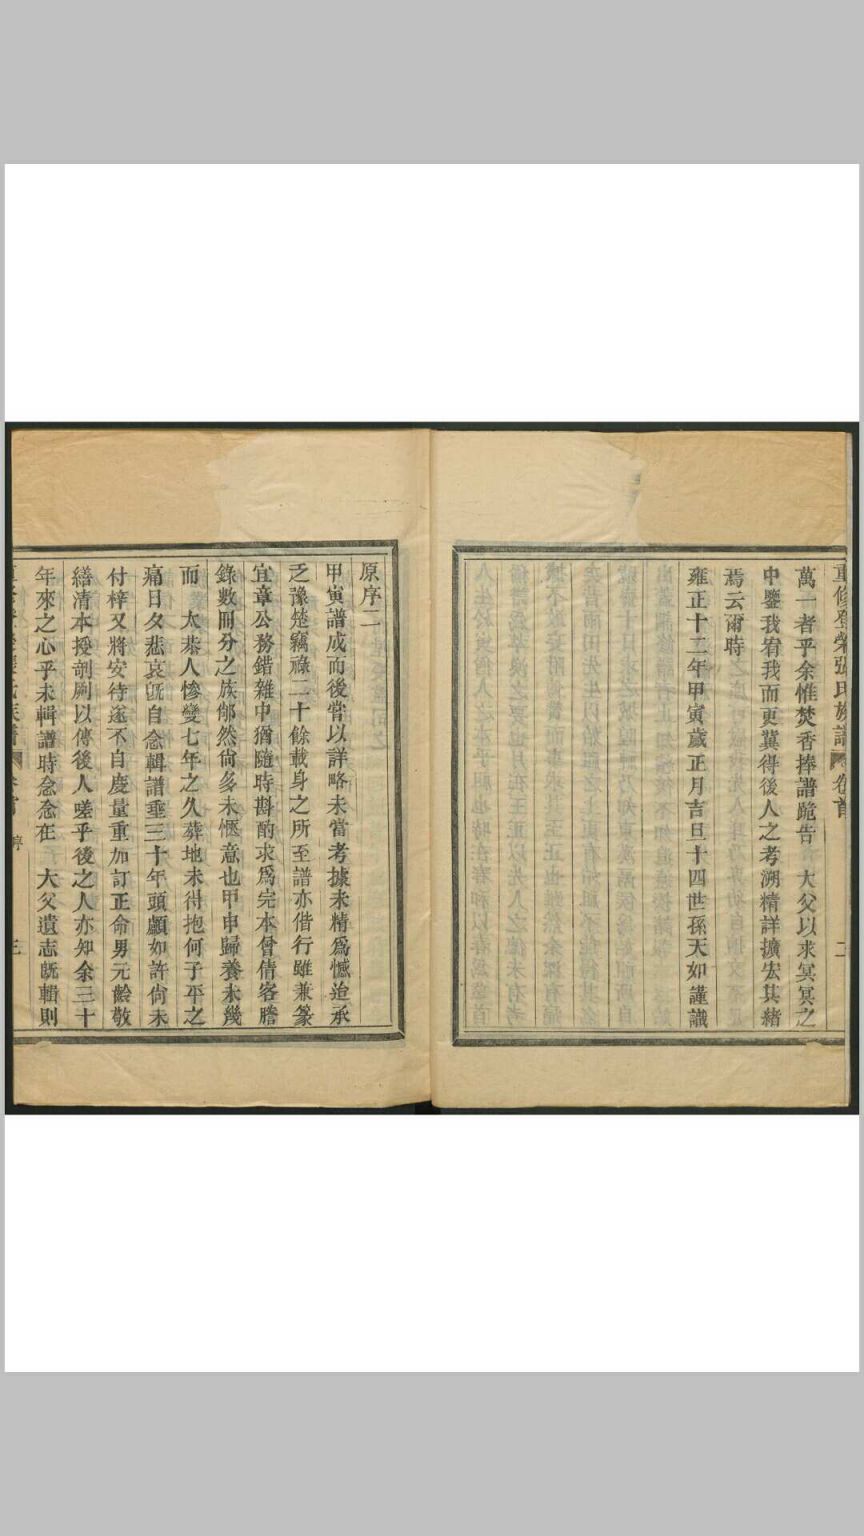 重修登榮張氏族譜 卷首 二
萬一者乎余惟焚香捧譜跪告 大父以求冥冥之
中鑒我宥我而更冀得後人之考溯精詳擴宏其緒
焉云爾時
雍正十二年甲寅歲正月吉旦十四世孫天如謹識
原序二
甲寅譜成而後嘗以詳略未當考據未精爲憾迨承
乏豫楚竊祿二十餘載身之所至譜亦偕行雖兼篆
宜章公務錯雜中猶隨時斟酌求爲完本曾倩客謄
錄數冊分之族邸然尙多未愜意也甲申歸養未幾
而 太恭人慘變七年之久葬地未得抱何子平之
痛日夕悲哀旣自念輯譜垂三十年頭顱如許尙未
付梓又將安待遂不自度量重加訂正命男元齡敬
繕清本授剞劂以傳後人嗟乎後之人亦知余三十
年來之心乎未輯譜時念念在 大父遺志旣輯則
序 三